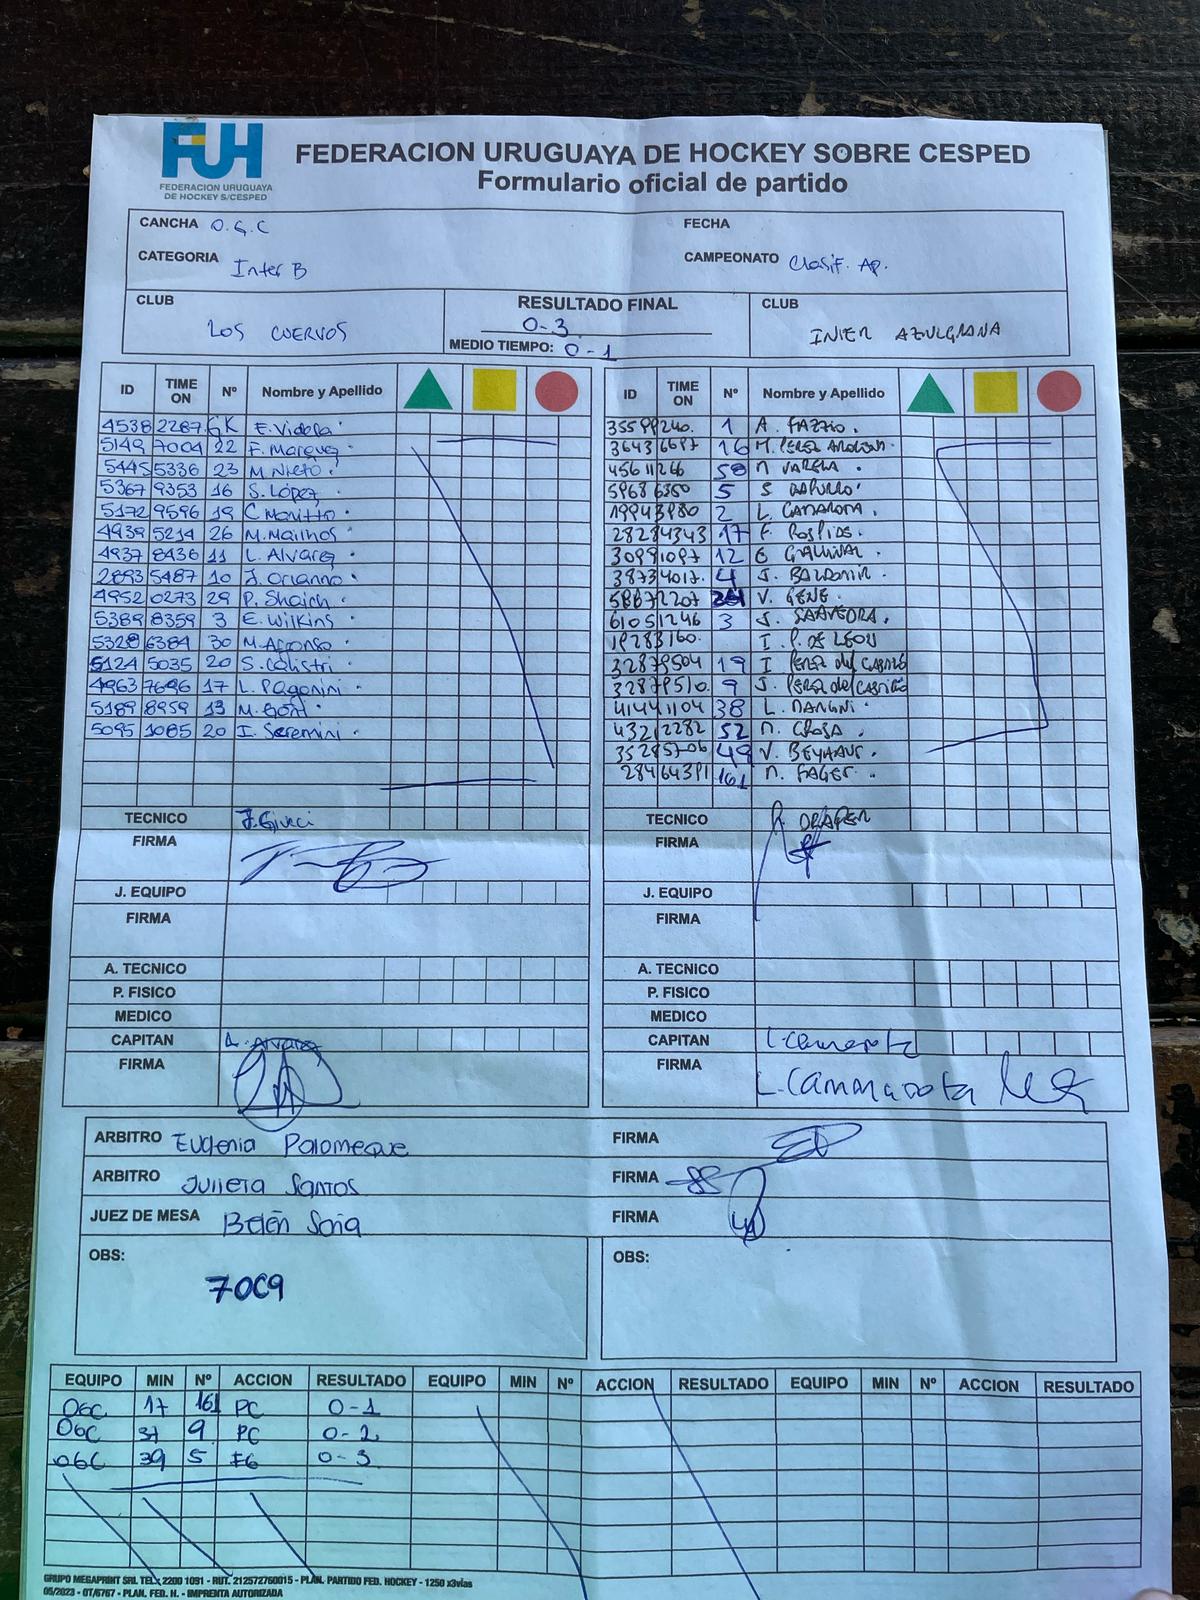 FUH
FEDERACION URUGUAYA
DE HOCKEY S/CESPED
FEDERACION URUGUAYA DE HOCKEY SOBRE CESPED
Formulario oficial de partido
CANCHA O.G.C
FECHA
CATEGORIA Inter B
CAMPEONATO Clasif. Ap.
CLUB
LOS CUERVOS
RESULTADO FINAL
0-3
MEDIO TIEMPO: 0-1
CLUB
INTER AZULGRANA
ID TIME ON Nº Nombre y Apellido
4538 2287 GK E. Videla
5149 7004 22 F. Marquez
5445 5336 23 M. Nieto
5367 9353 16 S. López
5172 9596 19
4939 5214 26 M. Mailhos
4937 8436 11 L. Alvarez
2893 5487 10
4952 0273 29 P. Shaich
5389 8359 3 E. Wilkins
5328 6384 30
5124 5035 20 S. Calistri
4963 7696 17 L. Paganini
5189 8959 13 M. Goñi
5095 1085 20 I. Seremini
TECNICO
FIRMA
J. EQUIPO
FIRMA
A. TECNICO
P. FISICO
MEDICO
CAPITAN L. Alvarez
FIRMA
ID TIME ON Nº Nombre y Apellido
35599240 1 A. FAZZIO
16 M. PEREZ
45611266 50 M. VARELA
5968 6350 5 S.
2 L. CAMAROTA
28284343 17 F.
30991097 12 GALLINAL
38734017 4 J. BALDOMIR
V. GENE
61051246 3 J. SAAVEDRA
19283160 I. P. DE LEON
32879504 19 I. PEREZ del CASTILLO
32879510 9 J. PEREZ del CASTILLO
41441104 38 L. MANGNI
4322282 52 M. CROSA
35285706 49 V. BEYHAUT
28464391 161 M. FAGET
TECNICO DRAPER
FIRMA
J. EQUIPO
FIRMA
A. TECNICO
P. FISICO
MEDICO
CAPITAN L. Camarota
FIRMA L. Cammarota
ARBITRO Eugenia Palomeque FIRMA
ARBITRO Julieta Santos FIRMA
JUEZ DE MESA Belén Soria FIRMA
OBS:
7009
OBS:
EQUIPO MIN Nº ACCION RESULTADO EQUIPO MIN Nº ACCION RESULTADO EQUIPO MIN Nº ACCION RESULTADO
OGC 17 161 PC 0-1
OGC 37 9 PC 0-2
OGC 39 5 FG 0-3
GRUPO MEGAPRINT SRL TEL.: 2200 1091 - RUT. 212572760015 - PLAN. PARTIDO FED. HOCKEY - 1250 x3vías
05/2023 - OT/6767 - PLAN. FED. H. - IMPRENTA AUTORIZADA